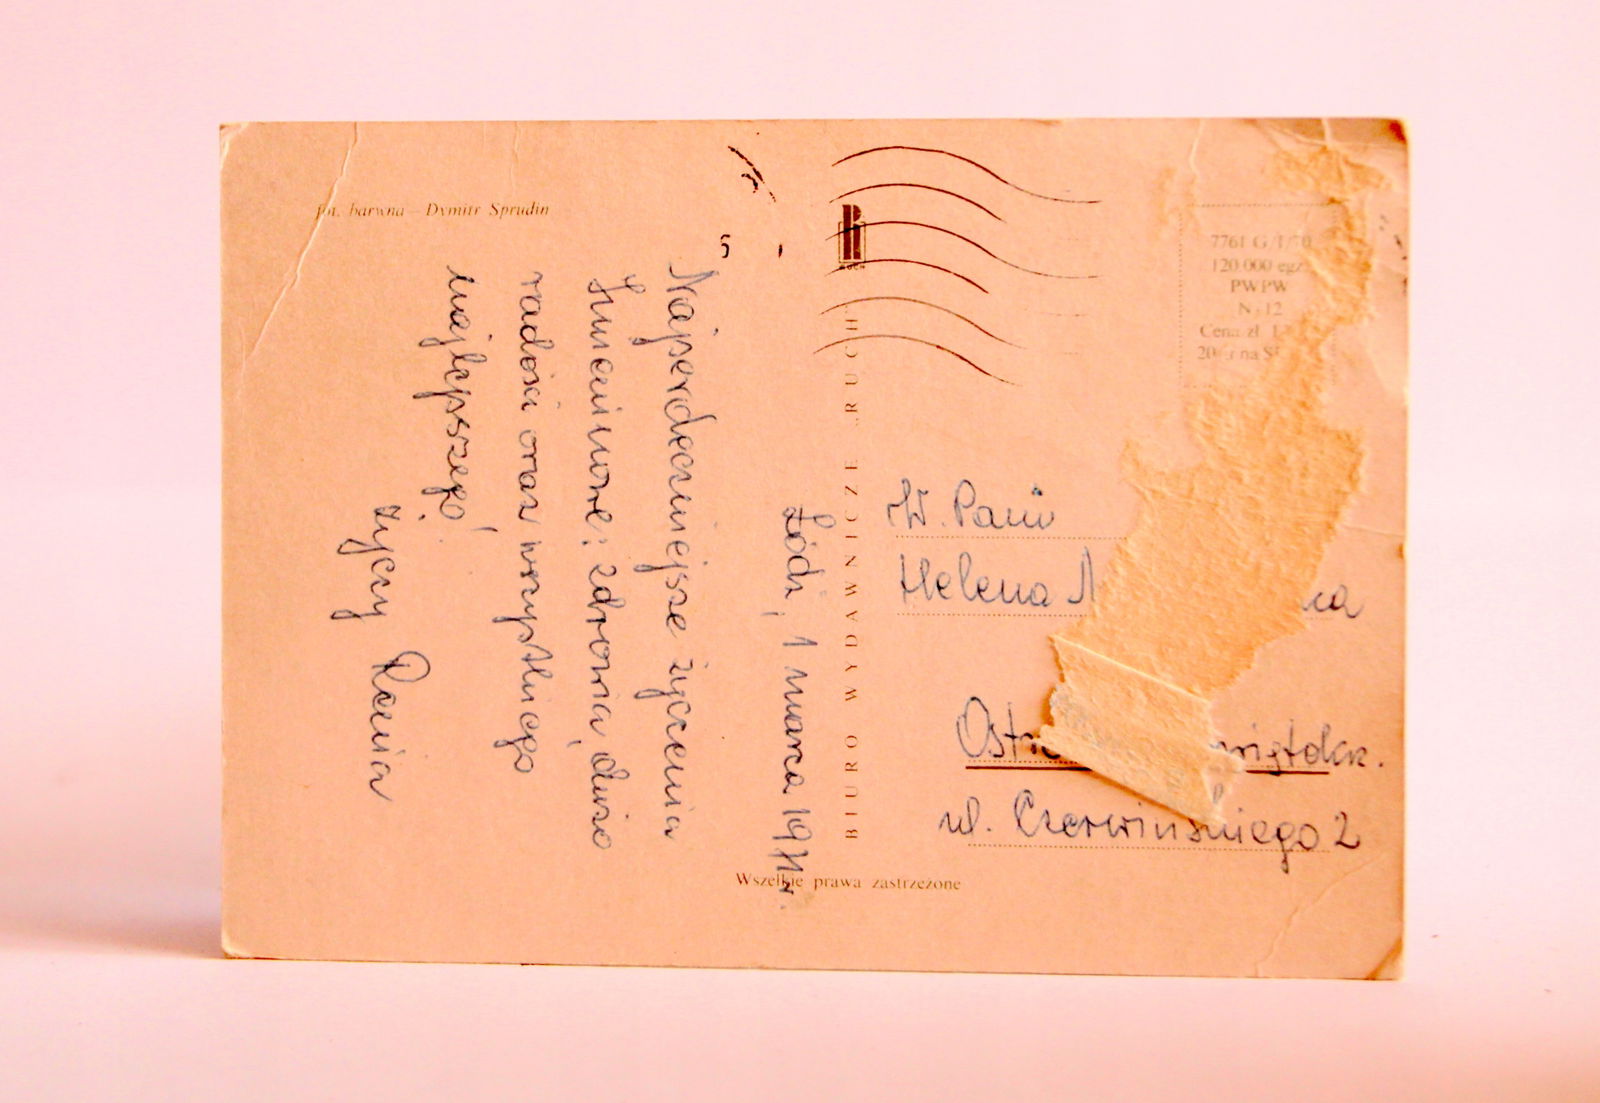 fot. barwna – Dymitr Sprudin
Łódź, 1 marca 1971r.
Najserdeczniejsze życzenia
Imieninowe: zdrowia, dużo
radości oraz wszystkiego
najlepszego,
życzy Renia
RUCH
BIURO WYDAWNICZE „RUCH”
Wszelkie prawa zastrzeżone
7761 G/I/70
120.000 egz.
PWPW
12
Cena zł
na
W. Pani
Helena
ul. Czerwińskiego 2